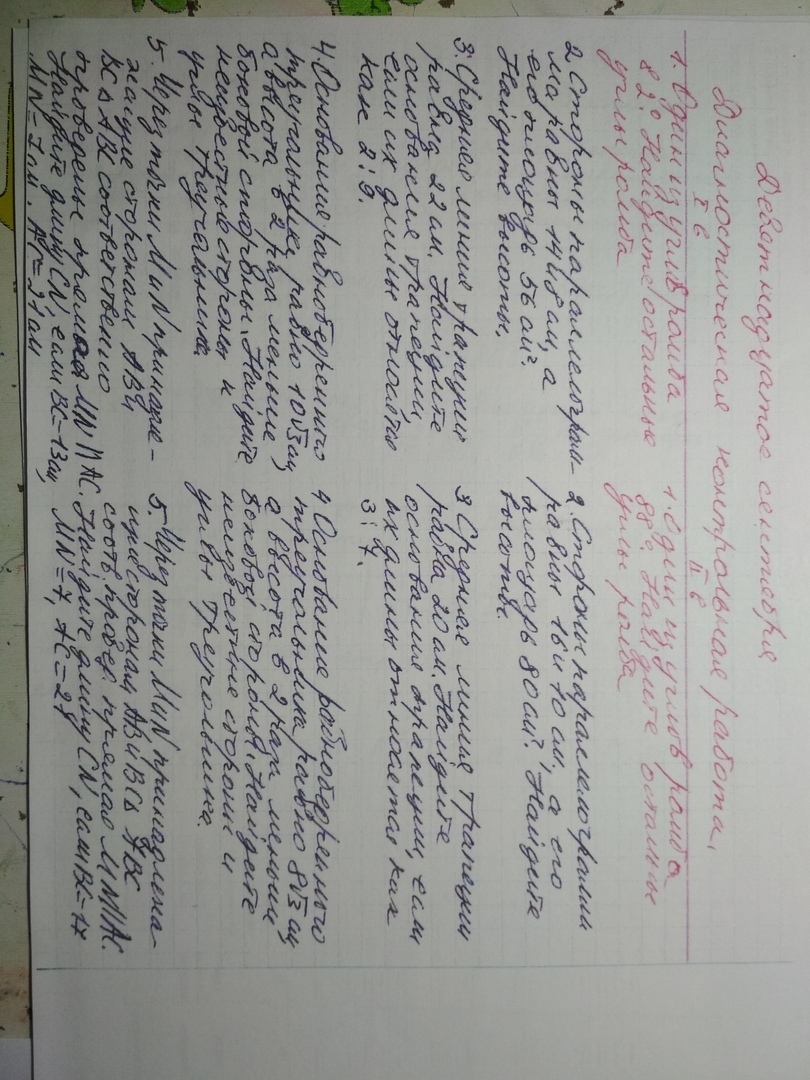 Девятнадцатое сентября
Диагностическая контрольная работа.
I в
1. Один из углов ромба
82°. Найдите остальные
углы ромба
2. Стороны параллелограм-
ма равны 14 и 8 см, а
его площадь 56 см².
Найдите высоты.
3. Средняя линия трапеции
равна 22 см. Найдите
основания трапеции,
если их длины относятся
как 2:9.
4. Основание равнобедренного
треугольника равно 10√3 см,
а высота в 2 раза меньше
боковой стороны. Найдите
неизвестные стороны и
углы треугольника.
5. Через точки M и N принадле-
жащие сторонам AB и
BC △ABC соответственно
проведена прямая MN || AC.
Найдите длину CN, если BC=13 см,
MN=7 см,
II в
1. Один из углов ромба
88°. Найдите остальные
углы ромба
2. Стороны параллелограмма
равны 16 и 10 см, а его
площадь 80 см². Найдите
высоты.
3 Средняя линия трапеции
равна 20 см. Найдите
основания трапеции, если
их длины относятся как
3:7.
4 Основание равнобедренного
треугольника равно 8√3 см,
а высота в 2 раза меньше
боковой стороны. Найдите
неизвестные стороны и
углы треугольника.
5. Через точки M и N принадлежа-
щие сторонам AB и BC △ABC
соотв. провед. прямая MN||AC.
Найдите длину CN, если BC=17
MN=7, AC=28